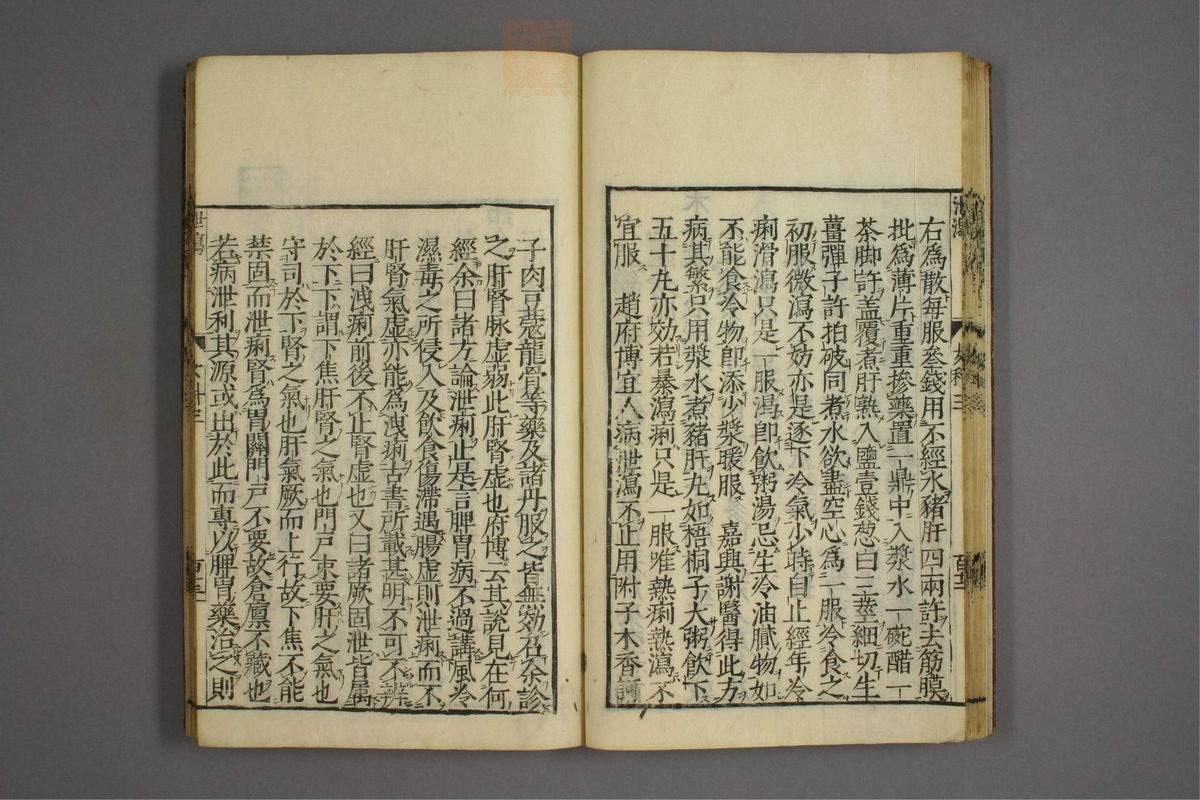 右爲散每服叄錢用不經水豬肝四兩許去筋膜
批爲薄片重重摻藥置一鼎中入漿水一碗醋一
茶脚許盖覆煮肝熟入鹽壹錢葱白三莖細切生
薑彈子許拍破同煮水欲盡空心爲一服冷食之
初服微瀉不妨亦是逐下冷氣少時自止經年冷
痢滑瀉只是一服渴卽飲粥湯忌生冷油膩物如
不能食冷物卽添少漿暖服 嘉興謝醫得此方
病其繁只用漿水煮豬肝丸如梧桐子大粥飲下
五十丸亦効若暴瀉痢只是一服唯熱痢熱瀉不
宜服 趙府博宜人病泄瀉不止用附子木香訶
子肉豆蔻龍骨等藥及諸丹服之皆無効召余診
之肝腎脉虚弱此肝腎虚也府博云其說見在何
經余曰諸方論泄痢止是言脾胃病不過講風冷
濕毒之所侵入及飲食傷滯遇腸虚則泄痢而不
肝腎氣虚亦能爲洩痢古書所載甚明不可不辨
經曰洩痢前後不止腎虚也又曰諸厥固泄皆属
於下下謂下焦肝腎之氣也門戸束要肝之氣也
守司於下腎之氣也肝氣厥而上行故下焦不能
禁固而泄痢腎爲胃關門戸不要故倉廩不藏也
若病泄利其源或出於此而專以脾胃藥治之則
泄瀉